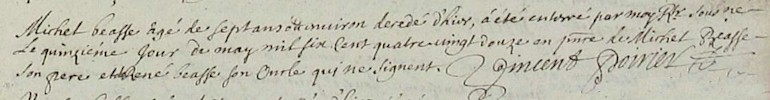 Michel beasse agé de sept ans ou environ decedé d'hier, a été enterré par moy Ptre sous né
Le quinziéme Jour de may mil six cent quatre vingt douze en pnce de Michel Beasse
son pere et René beasse son oncle qui ne signent. Vincent Poirier Ptre